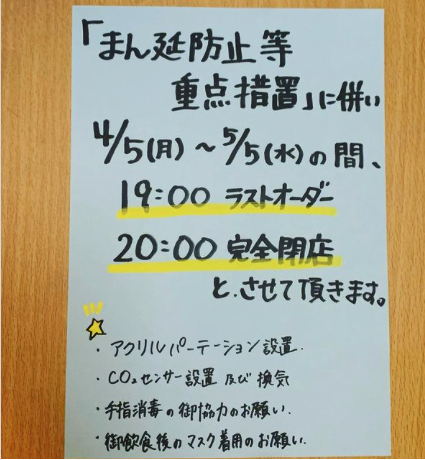 「まん延防止等
重点措置」に併い
4/5(月)～5/5(水)の間、
19:00 ラストオーダー
20:00 完全閉店
と.させて頂きます。
・アクリルパーテーション設置.
・CO₂センサー設置及び換気
・手指消毒の御協力のお願い.
・御飲食後のマスク着用のお願い.